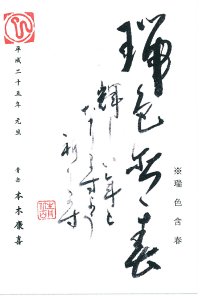 ※瑞色含春
瑞色含春
輝しい年と
なりますよう
祈ります
本木康喜
平成二十五年 元旦